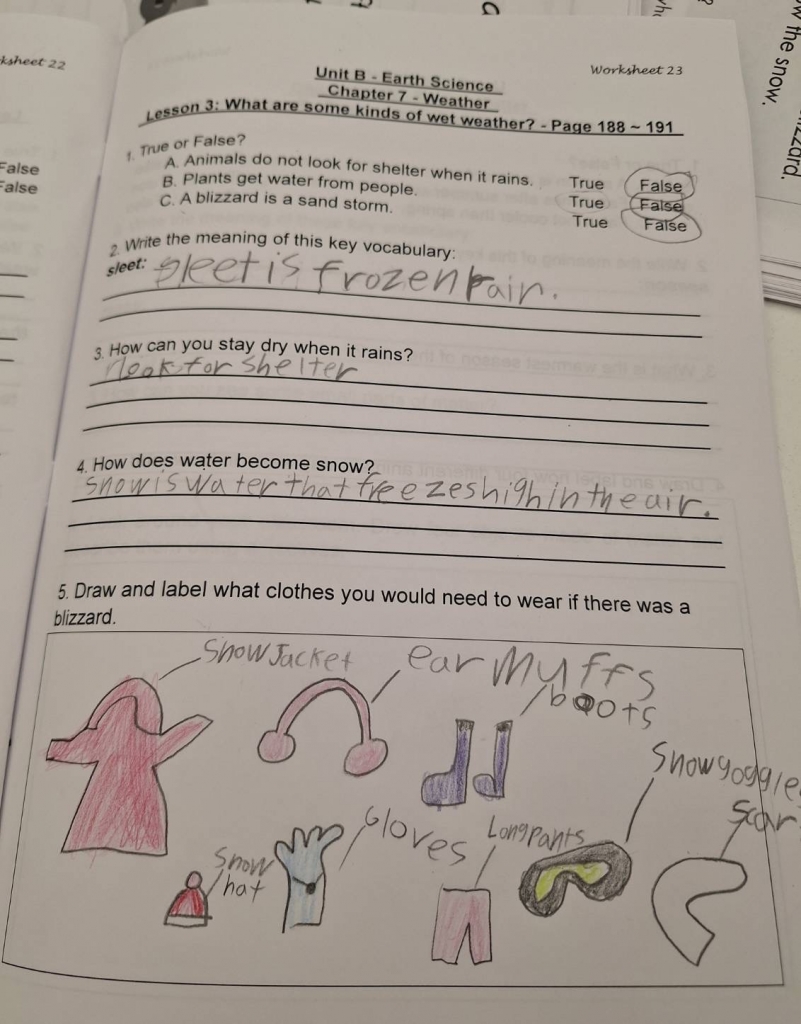 ksheet 22
False
False
w the snow.
izzard.
Worksheet 23
Unit B - Earth Science
Chapter 7 - Weather
Lesson 3: What are some kinds of wet weather? - Page 188 ~ 191
1. True or False?
A. Animals do not look for shelter when it rains. True False
B. Plants get water from people. True False
C. A blizzard is a sand storm. True False
2. Write the meaning of this key vocabulary:
sleet: sleet is frozen rain.
3. How can you stay dry when it rains?
look for shelter
4. How does water become snow?
snow is water that freezes high in the air.
5. Draw and label what clothes you would need to wear if there was a
blizzard.
Snow Jacket
ear Muffs
boots
Snow goggle
Scar
Gloves
Long pants
Snow
hat